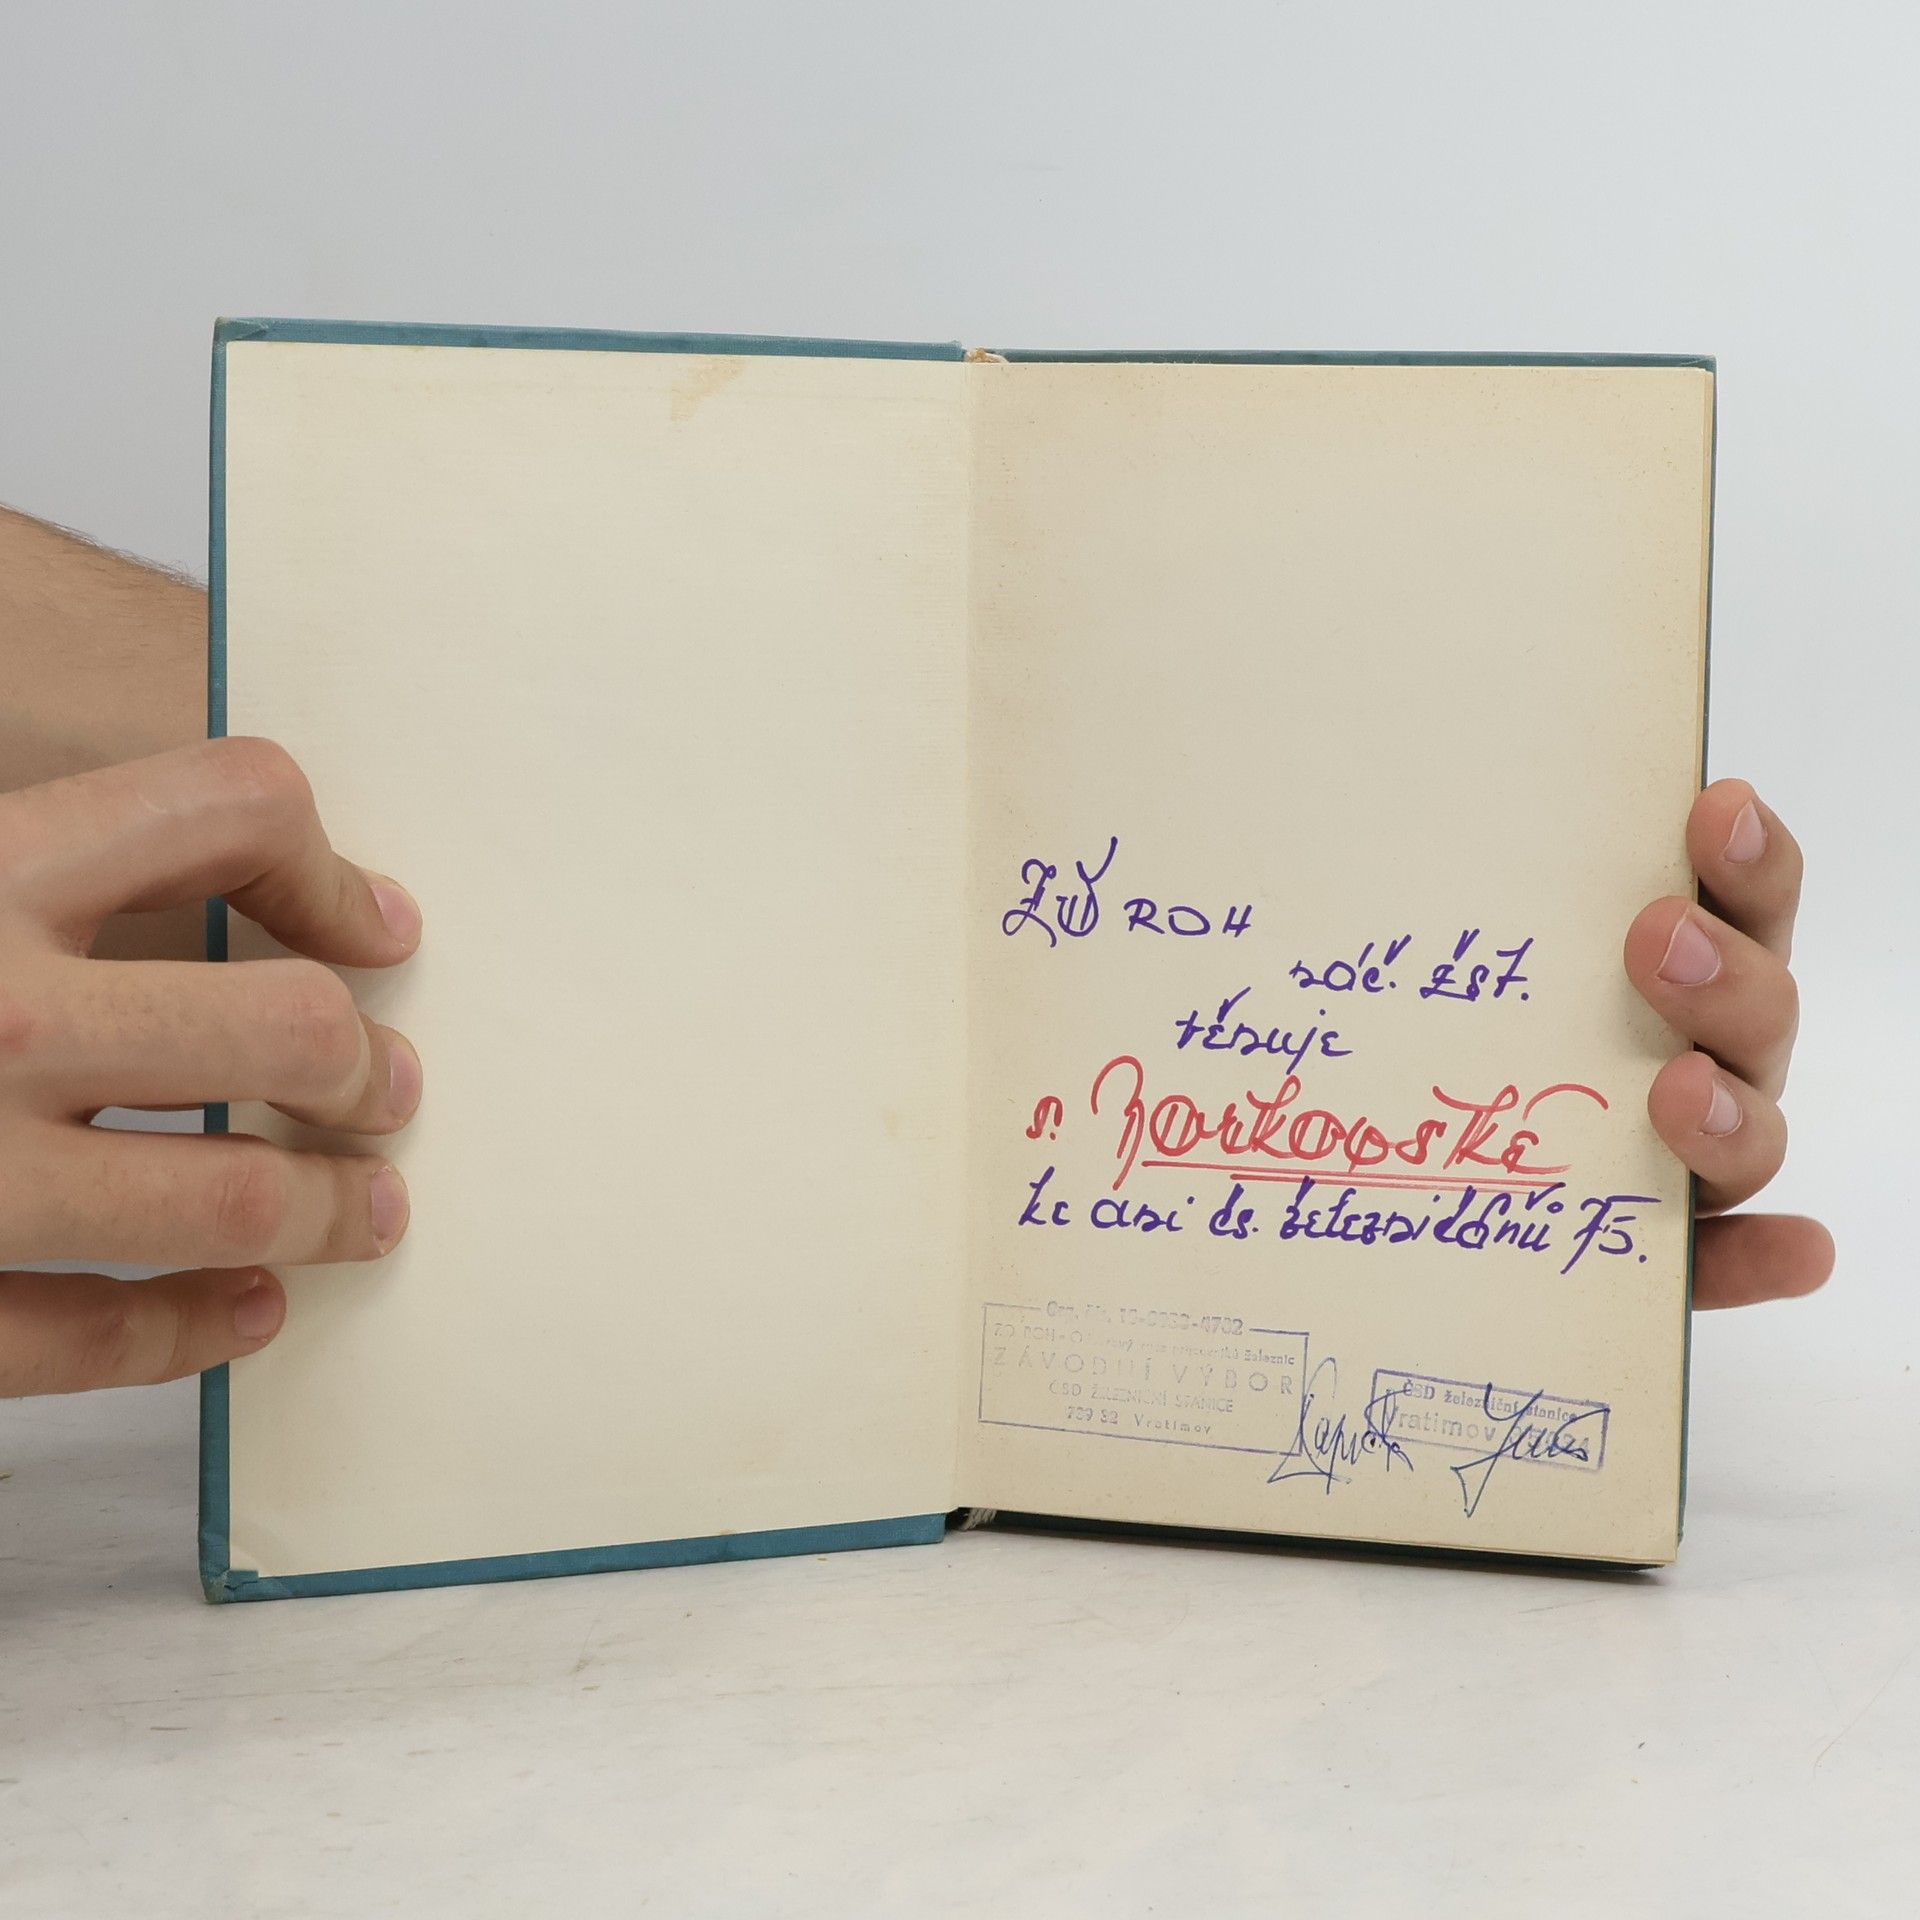 ZV ROH
náč. žst.
věnuje
s. Borkovské
ke dni čs. železničářů 75.
Org. čís. 10-0038-4702
ZO ROH - železnic
ZÁVODNÍ VÝBOR
ČSD ŽELEZNIČNÍ STANICE
739 32 Vratimov
ČSD železniční stanice
Vratimov